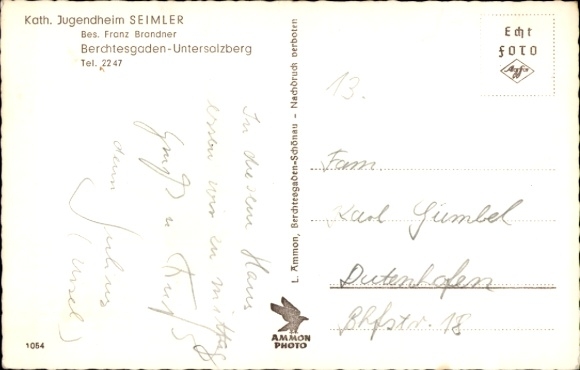 Kath. Jugendheim SEIMLER
Bes. Franz Brandner
Berchtesgaden-Untersalzberg
Tel. 2247
In diesem Haus
essen wir zu mittag
Gruß u Kuß
dein
1054
L. Ammon, Berchtesgaden-Schönau - Nachdruck verboten
AMMON
PHOTO
Echt
FOTO
Agfa
13.
Fam.
Karl Gümbel
Dutenhofen
Bhfstr. 18